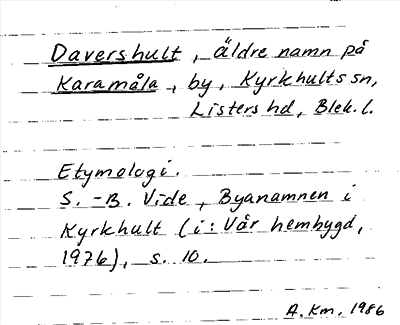 Davershult, äldre namn på
Karamåla, by, Kyrkhults sn,
Listers hd, Blek. l.
Etymologi.
S.-B. Vide, Byanamnen i
Kyrkhult (i: Vår hembygd,
1976), s. 10.
A. Km. 1986